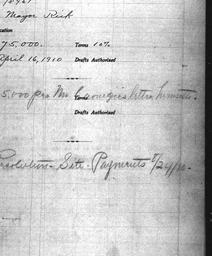 Mayor Rick
75,000. Terms 10%
April 16, 1910 Drafts Authorized
5,000 per Mr. Carnegie's letter
Drafts Authorized
Resolution - Site - Payments